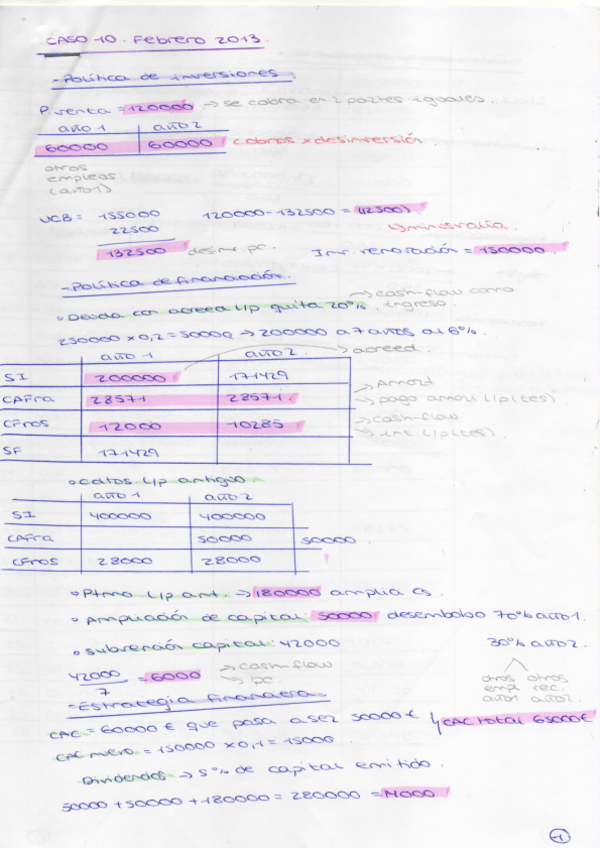 CASO 10. Febrero 2013.
- Política de inversiones
P. venta = 120000 → se cobra en 2 partes iguales.
año 1 año 2
60000 60000 cobros x desinversión
otros
empleos
(año 1)
VCB = 155000 120000 - 132500 = (12500)
22500 ↳ minusvalía
132500 desinv. pc. Inv. renovación = 150000
- Política de financiación.
• Deuda con acreed L/p quita 20% → cash-flow como
ingreso
250000 x 0,2 = 50000 → 200000 a 7 años al 6%
año 1 año 2 → acreed.
SI 200000 171429 → Amort
CAFra 28571 28571 → pago amort L/p (tes)
CFros 12000 10285 → cash-flow
→ int. L/p (tes)
SF 171429
• cdtos L/p antiguo
año 1 año 2
SI 400000 400000
CAFra 50000 50000
CFros 28000 28000
• Ptmo L/p ant. → 180000 amplia CS
• Ampliación de capital: 50000 desembolso 70% año 1.
• subvención capital: 42000 30% año 2.
42000 / 7 = 6000 → cash-flow
→ pc.
otros otros
empl rec.
año 1 año 2.
- Estrategia financiera
CAC = 60000 € que pasa a ser 50000 € ↳ CAC total 65000 €
CAC nuevo = 150000 x 0,1 = 15000
Dividendos → 5% de capital emitido.
50000 + 50000 + 180000 = 280000 = 14000
1